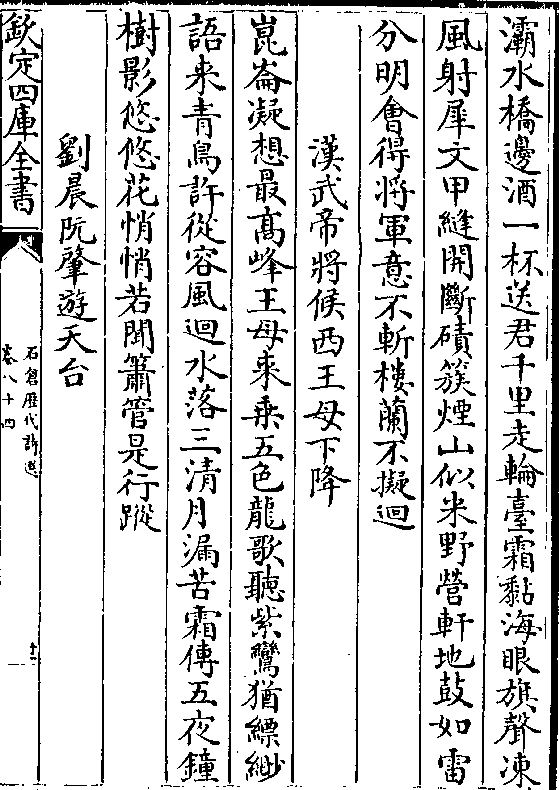 灞水橋邊酒一杯送君千里走輪臺霜黏海眼旗聲凍
風射犀文甲縫開斷磧簇煙山似米野營軒地鼓如雷
分明會得將軍意不斬樓蘭不擬迴
漢武帝將候西王母下降
崑崙凝想最高峰王母來乗五色龍歌聽紫鸞猶縹緲
語來青鳥許從容風迴水落三清月漏苦霜傳五夜鐘
樹影悠悠花悄悄若聞簫管是行蹤
劉晨阮肇遊天台
欽定四庫全書
石倉歷代詩選
卷八十四
十一